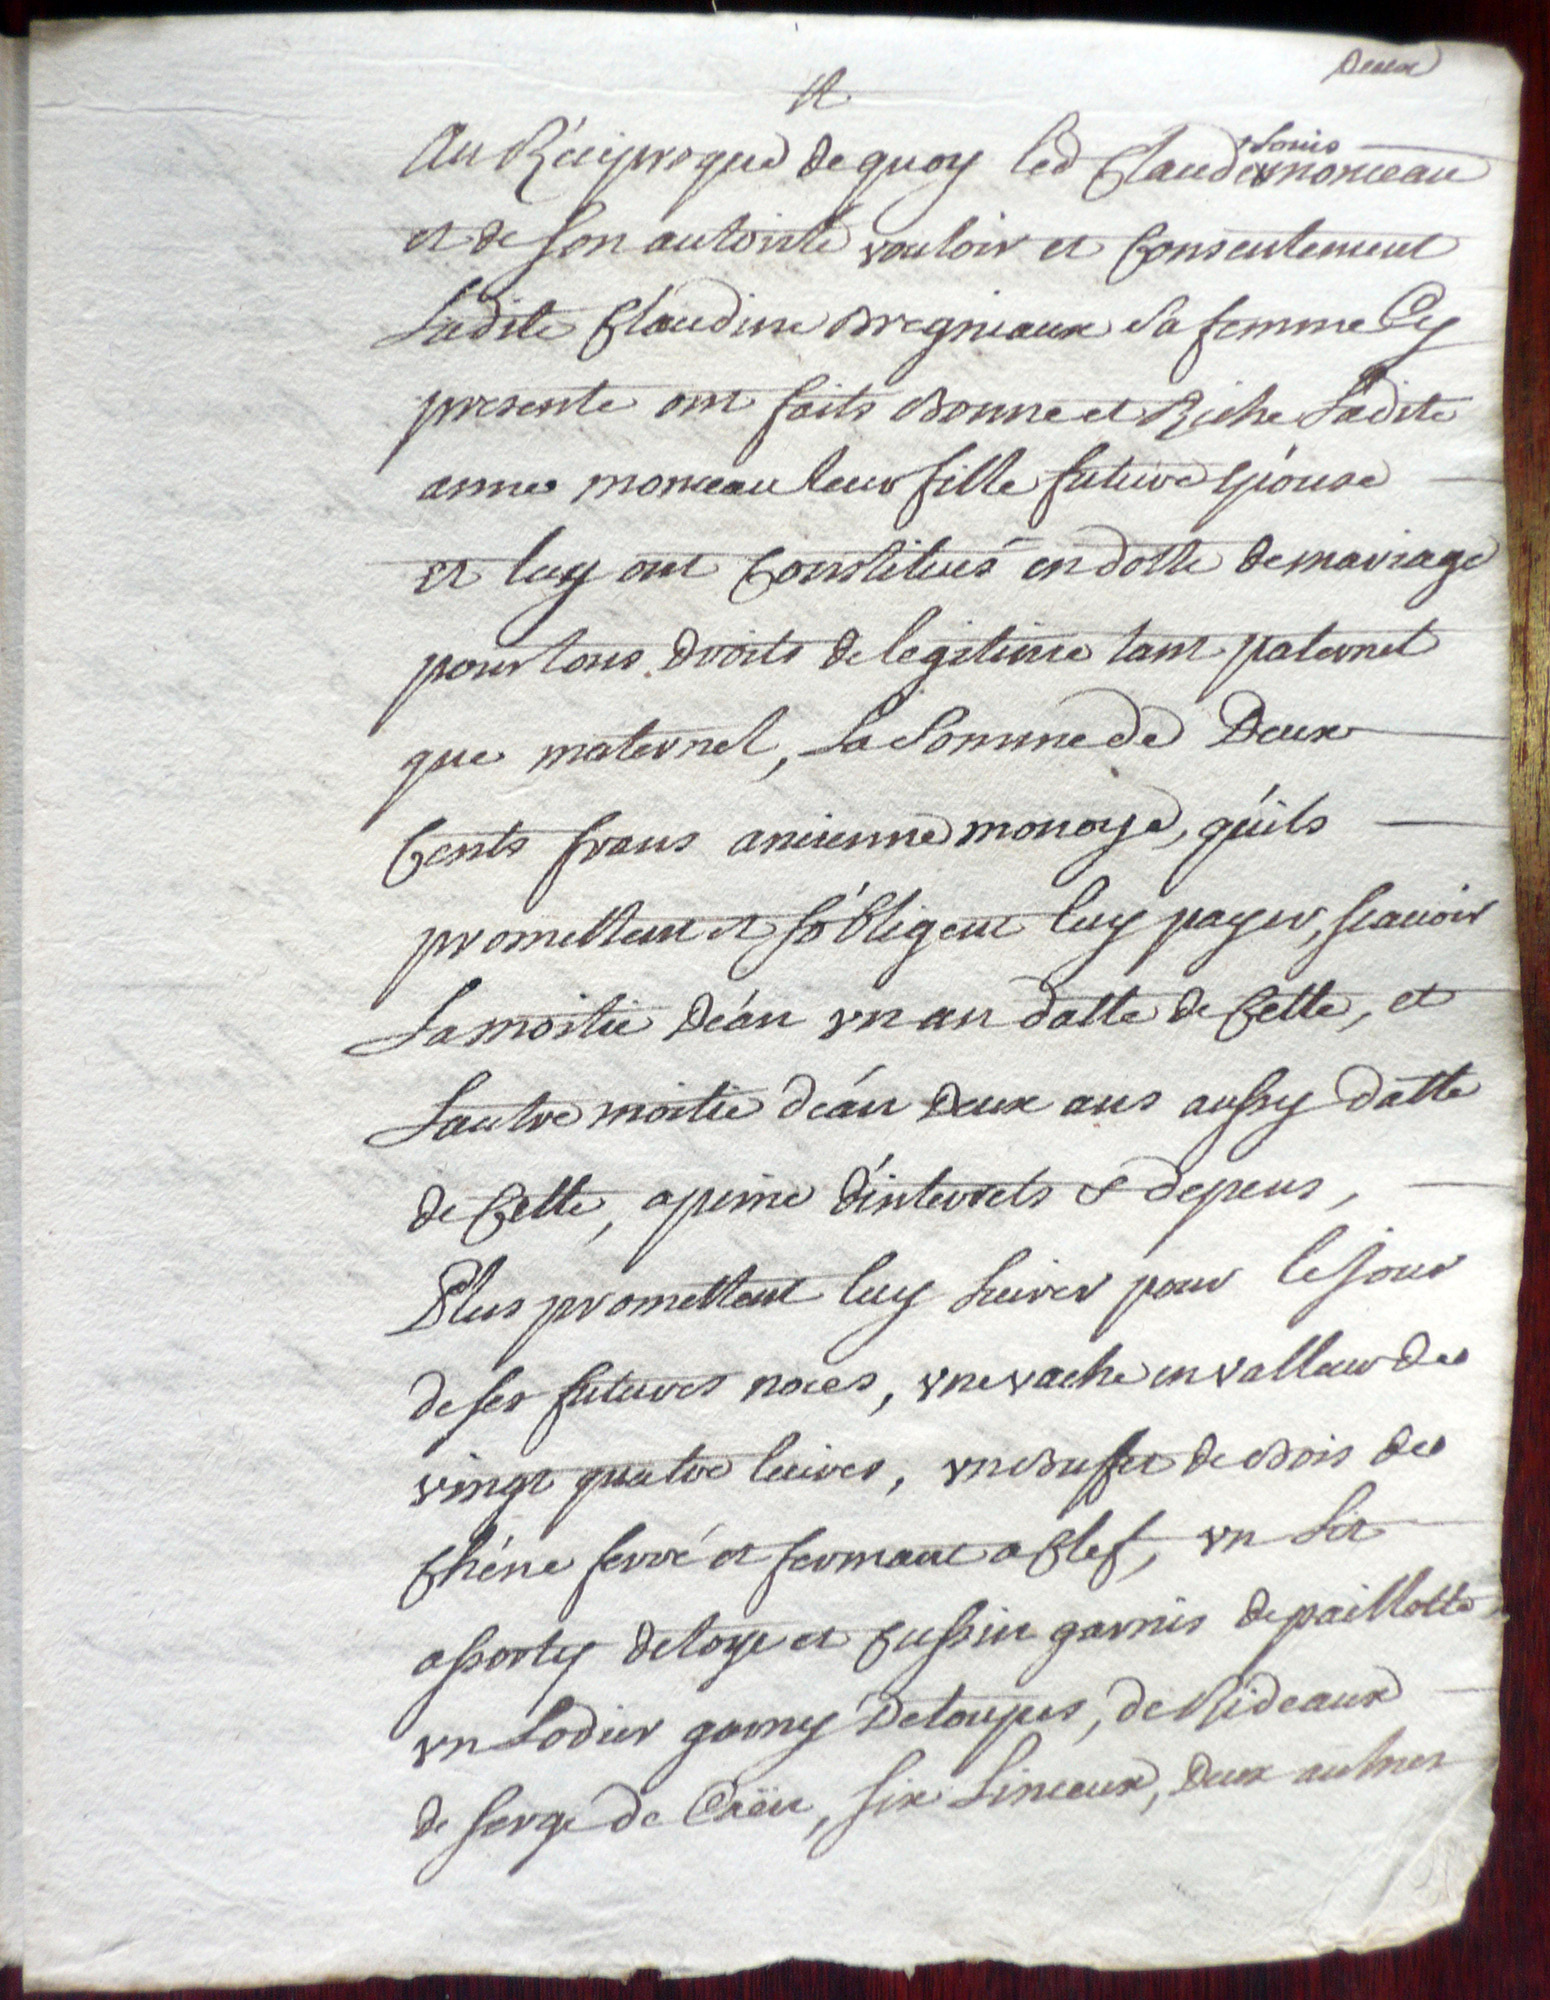 Deux
et
Au Réciproque de quoy led Claude Louis monceau
et de son autorité vouloir et Consentement
Ladite Claudine Bregniaux Sa femme Cy
presente ont faits Bonne et Riche Ladite
anne monceau leur fille future Epouse
et luy ont Constitués en dotte de mariage
pour tous droits de legitime tant paternel
que maternel, La Somme de Deux
Cents frans ancienne monoye, qu'ils
promettent et s'obligent luy payer, scavoir
La moitié déán un an datte de Cette, et
L'autre moitié déán deux ans aussy datte
de Cette, a peine d'interrets & depens,
Plus promettent luy Livrer pour le jour
de ses futures noces, une vache en valleur de
vingt quatre livres, un Buffet de Bois de
Chéne ferré et fermant a Clef, un Lit
assorty de loye et Cussin garnis de paillotte
un Lodier garny d'etoupes, de Rideaux
de serge de Caën, six Linceux, deux autres